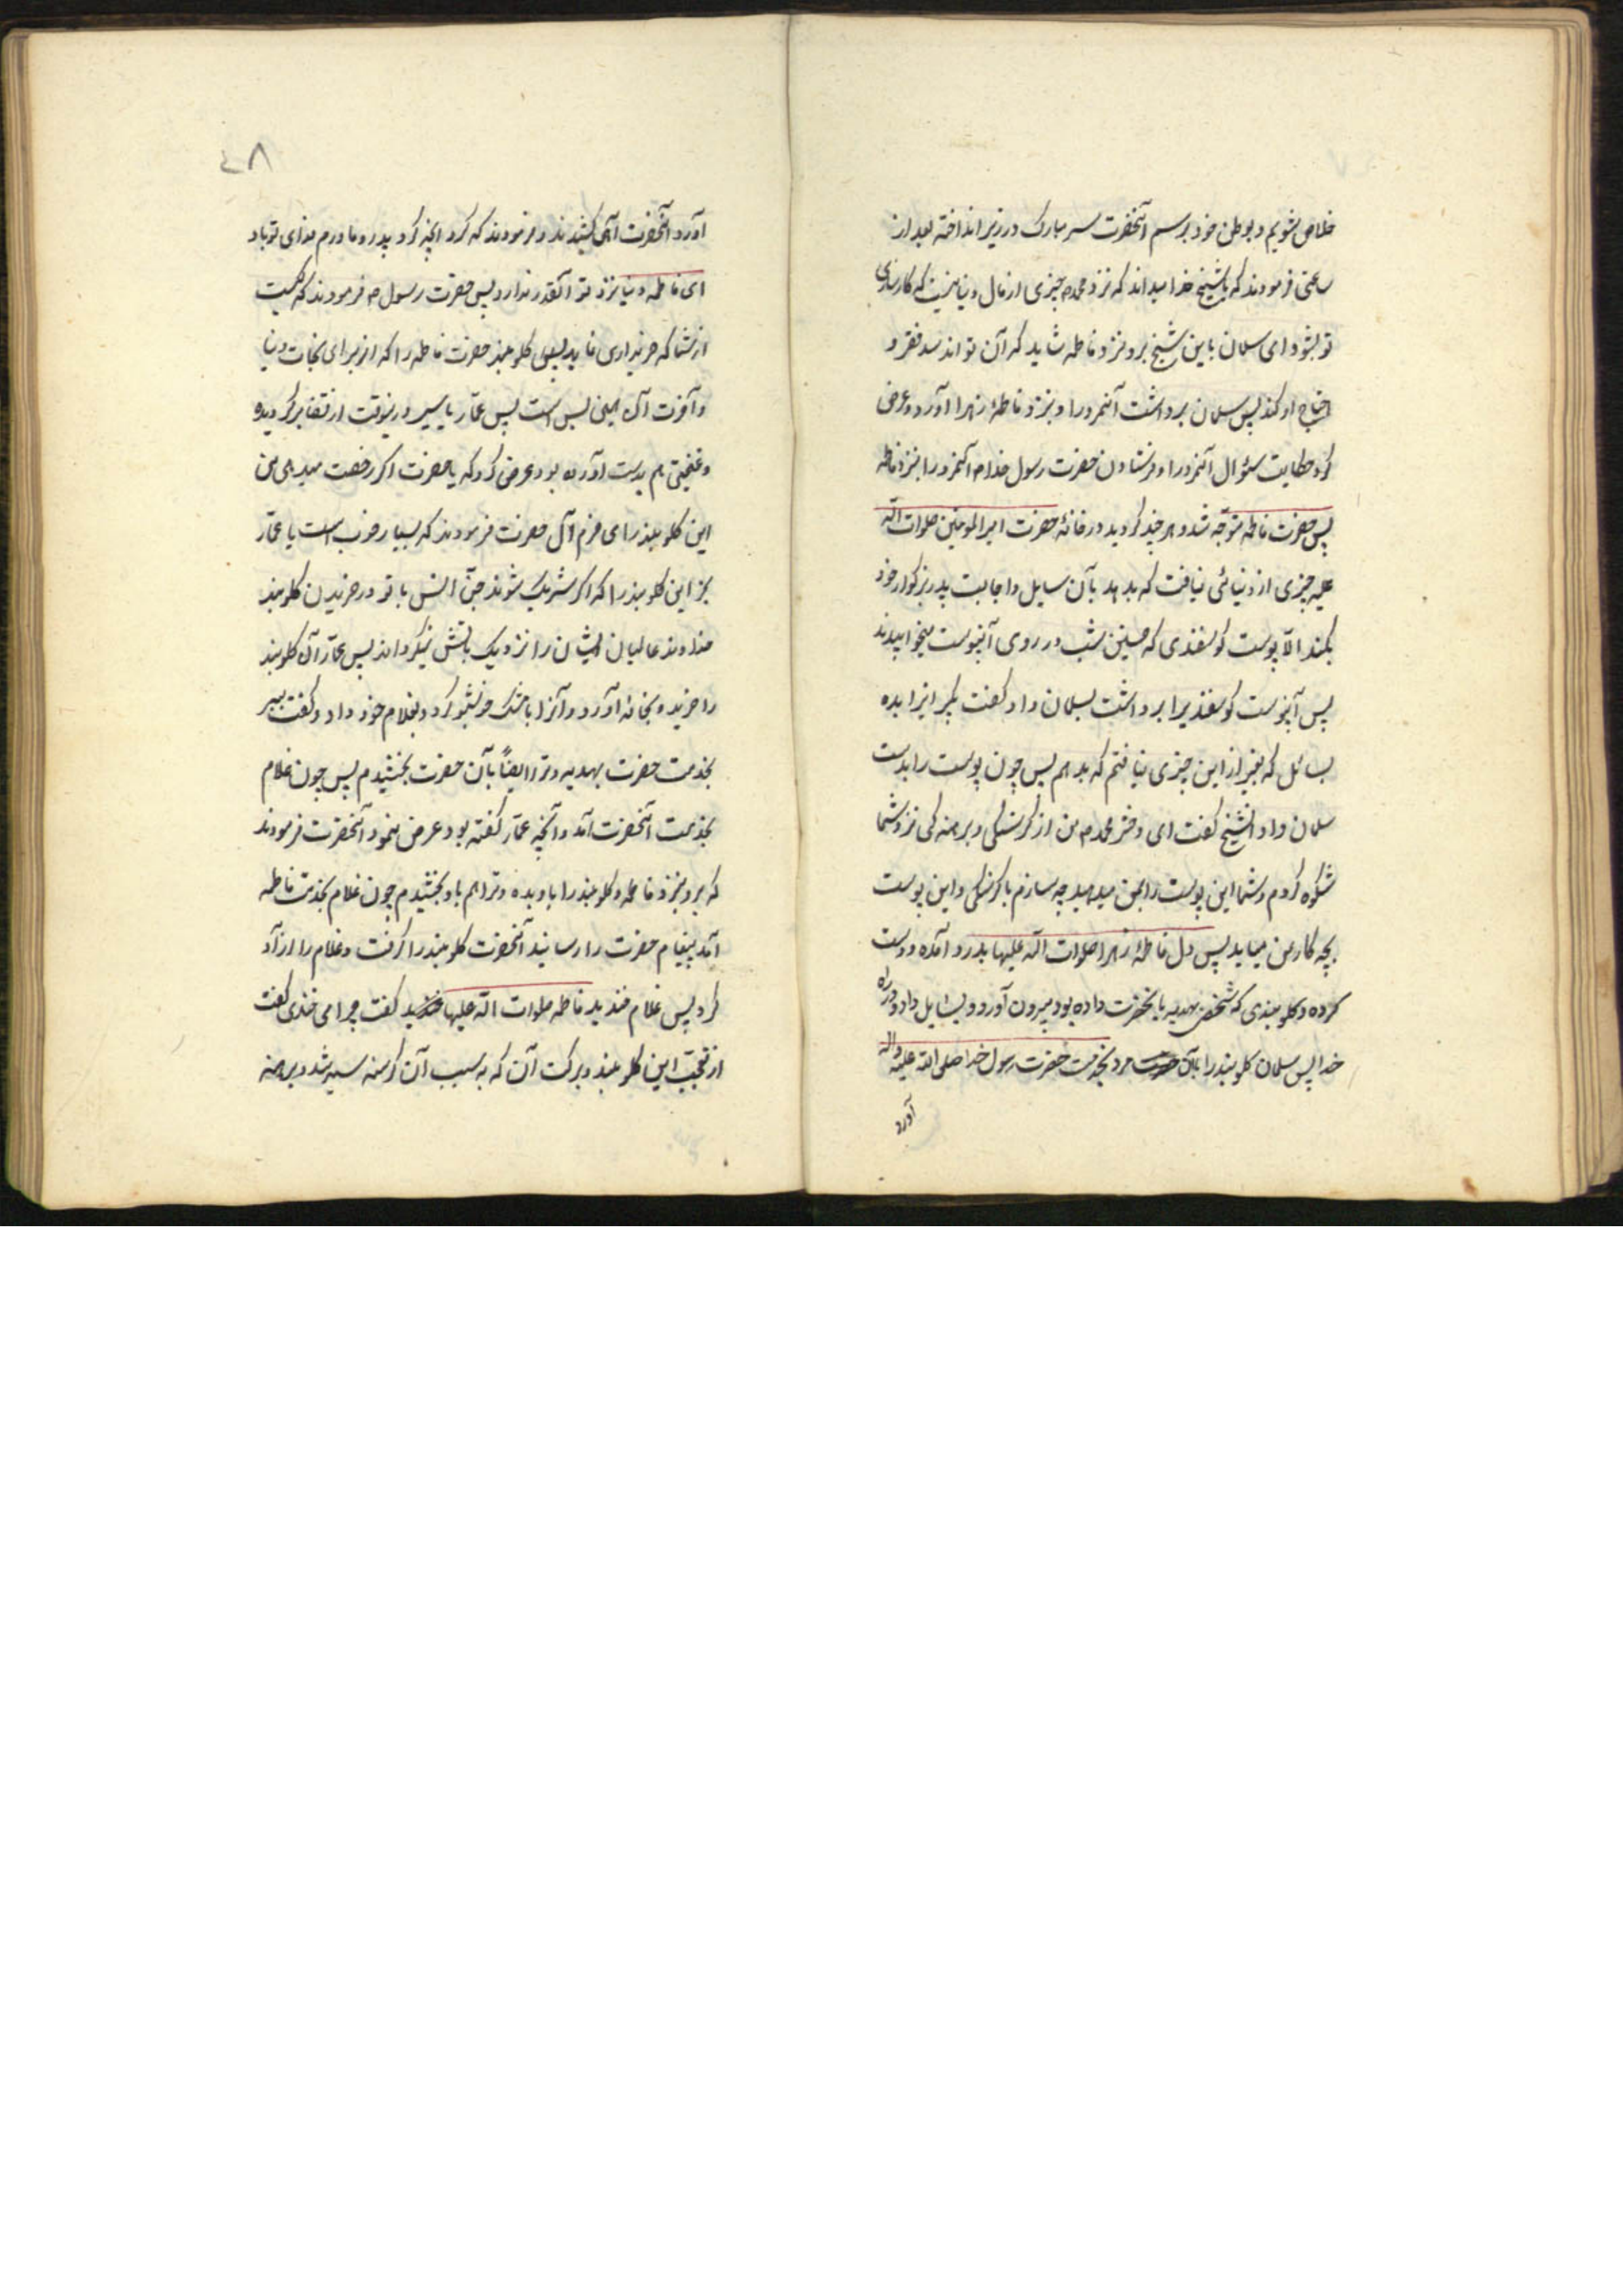 خلاص شویم و بوطن خود برسم آنحضرت سر مبارک در زیر انداخته بعد از
ساعتی فرمودند که یا شیخ خدا میداند که نزد محمد ص چیزی از مال دنیا نیست که کارسازی
تو بشود ای سلمان با این شیخ برو نزد فاطمه شاید که آن تواند سد فقر و
احتیاج او کند پس سلمان برداشت آنمرد را و بنزد فاطمهٔ زهرا آورد و عرض
کرد حکایت سئوال آنمرد را و فرستادن حضرت رسول خدا ص آنمرد را بنزد فاطمه
پس حضرت فاطمه متوجّه شد و هر چند گردید در خانهٔ حضرت امیر المومنین صلوات الله
علیه چیزی از دنیائی نیافت که بدهد بآن سایل و اجابت پدر بزرگوار خود
بکند الّا پوست گوسفندی که حسنین شب در روی آنپوست میخوابیدند
پس آنپوست گوسفندیرا برداشت بسلمان داد و گفت بگیر اینرا بده
بسائل که بغیر از این چیزی نیافتم که بدهم پس چون پوست را بدست
سلمان داد آنشیخ گفت ای دختر محمد ص من از گرسنگی و برهنه‌گی نزد شما
شکوه کردم و شما این پوست را بمن میدهید چه سازم با گرسنگی و این پوست
بچه کار من میاید پس دل فاطمهٔ زهرا صلوات الله علیها بدرد آمده و دست
کرده و گلوبندی که شخصی بهدیه بآنحضرت داده بود بیرون آورد و بسایل داد در راه
خدا پس سلمان گلوبند را با آن مرد بخدمت حضرت رسول خدا صلی الله علیه و اله
آورد
٤٨
آورد آنحضرت آهی کشیدند و فرمودند که کرد آنچه کرد پدر و مادرم فدای تو باد
ای فاطمه دنیا نزد تو آنقدر ندارد پس حضرت رسول ص فرمودند که کیست
از شما که خریداری نماید یعنی گلوبند حضرت فاطمه را که از برای نجات دنیا
و آخرت آن همین بس است پس عمّار یاسیر در ینوقت از قضا برگردیده
و غنیمتی هم بدست آورده بود عرض کرد که یا حضرت اگر رخصت میدهی من
این گلوبند را می خرم آن حضرت فرمودند که بسیار خوب است یا عمّار
بخر این گلوبند را که اگر شریک شوند جنّ و انس با تو در خریدن گلوبند
خداوند عالمیان ایشان را نزدیک بآتش نیگرداند پس عمّار آن گلوبند
را خریده بخانه آورد و آنرا با مشک خوشبو کرد و بغلام خود داد و گفت ببر
بخدمت حضرت بهدیه و ترا ایضاً بآن حضرت بخشیدم پس چون غلام
بخدمت آنحضرت آمد و آنچه عمّار گفته بود عرض نمود آنحضرت فرمودند
که برو بنزد فاطمه و گلوبند را باو بده و ترا هم باو بخشیدم چون غلام بخدمت فاطمه
آمد پیغام حضرت را رسانید آنحضرت گلوبند را گرفت و غلام را ازآد
کرد پس غلام خندید فاطمه صلوات الله علیها گفت چرا می خندی گفت
از تعجّب این گلوبند و برکت آن که به سبب آن گرسنه سیر شد و برهنه